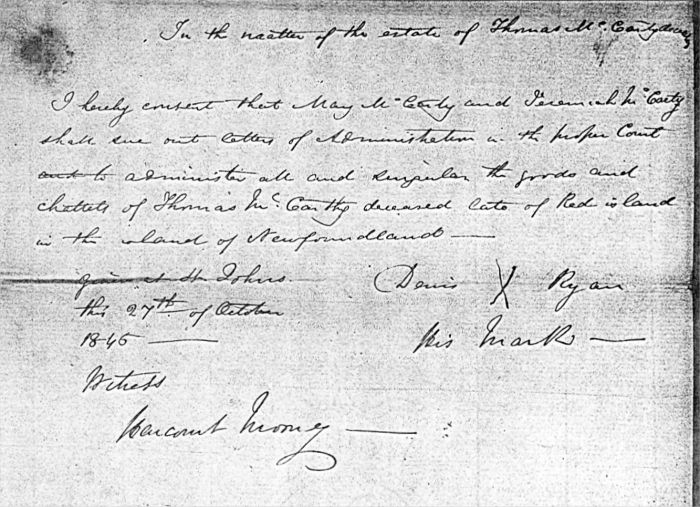 In the matter of the estate of Thomas Mc Carty
I hereby consent that Mary McCarty and Jeremiah McCarty
shall sue out letters of Administration in the proper Court
and to administer all and singular the goods and
chattels of Thomas Mc. Carthy deceased late of Red island
in the island of Newfoundland —
given at St Johns
this 27th of October
1845 —
Denis X Ryan
his Mark —
Witness
Harcourt Mooney —